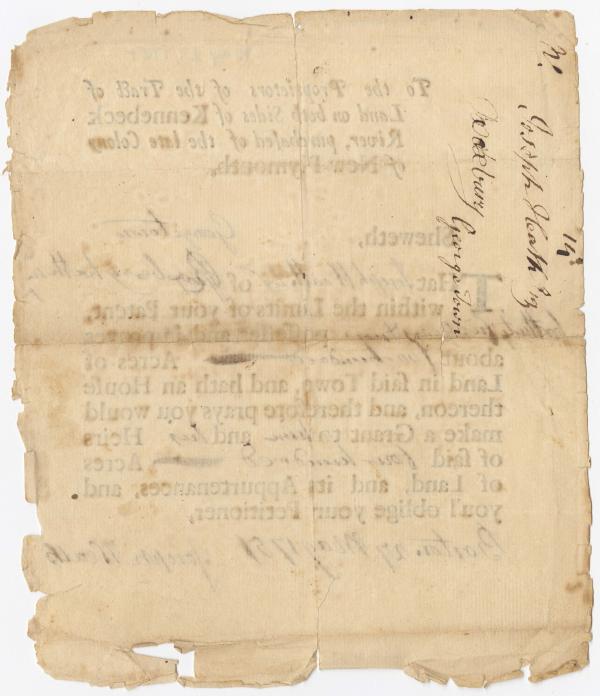 Joseph Heath Esq
Roxbury George Town
To the Proprietors of the Tract of
Land on both Sides of Kennebeck
River, purchased of the late Colony
of New-Plymouth,
Georgetown
Sheweth,
THat Joseph Heath Esq of Roxbury hath a
within the Limits of your Patent,
possesses and improves
about four hundred Acres of
Land in said Town, and hath an House
thereon, and therefore prays you would
make a Grant to him and his Heirs
of said four hundred Acres
of Land, and its Appurtenances, and
you'l oblige your Petitioner,
Boston, 27 May 1751 Joseph Heath